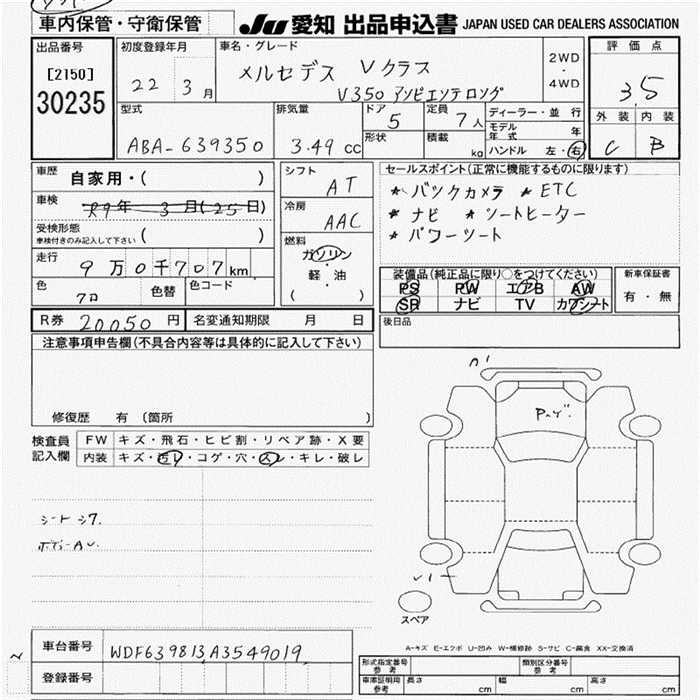 車内保管・守衛保管
JU 愛知 出品申込書 JAPAN USED CAR DEALERS ASSOCIATION
出品番号 初度登録年月 車名・グレード 評価点
[2150] 22 3月 メルセデス Vクラス 2WD・4WD 3.5
30235 V350 アンビエンテロング
型式 排気量 ドア 5 定員 7人 ディーラー・並行 外装 内装
モデル年式 年
ABA-639350 3.49 cc 形状 積載 kg ハンドル 左・右 C B
車歴 自家用・( ) シフト AT セールスポイント(正常に機能するものに限ります)
車検 R9年 3月(25日) 冷房 AAC * バックカメラ * ETC
受検形態 ( ) * ナビ * シートヒーター
車検付きのみ記入して下さい * パワーシート
走行 9万0千707km 燃料 ガソリン・軽・油 ( )
装備品(純正品に限り○をつけてください) 新車保証書
色 クロ 色替 色コード PS PW エアB AW 有・無
SR ナビ TV カワシート
R券 20050円 名変通知期限 月 日 後日品
注意事項申告欄(不具合内容等は具体的に記入して下さい)
修復歴 有 (箇所 )
検査員記入欄 FW キズ・飛石・ヒビ割・リペア跡・X要
内装 キズ・汚レ・コゲ・穴・スレ・キレ・破レ
シート
スペア
A-キズ E-エクボ U-凹み W-補修跡 S-サビ C-腐食 XX-交換済
車台番号 WDF639813A3549019
登録番号
形式指定番号 参考 類別区分番号 参考
車庫証明用 参考 長さ cm 幅 cm 高さ cm